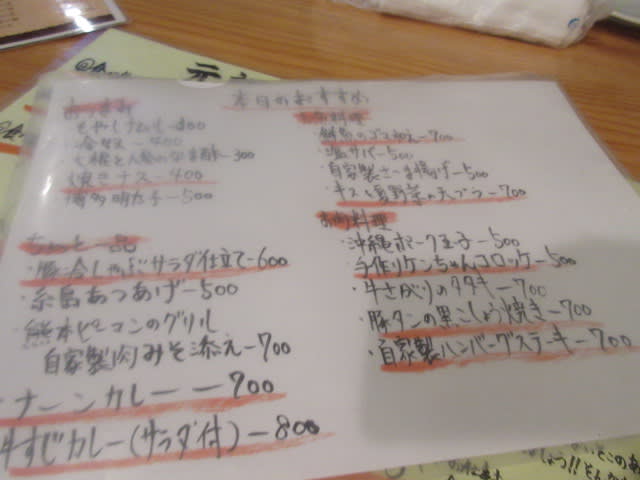 本日のおすすめ
おつまみ
もやしナムル-300
冷奴-400
大根と人参のなま酢-300
焼きナス-400
博多明太子-500
ちょっと一品
・豚冷しゃぶサラダ仕立て-600
・糸島あつあげ-500
・熊本ピーマンのグリル
自家製肉みそ添え-700
ナーンカレー-700
牛すじカレー(サラダ付)-800
お魚料理
・鮮魚のゴマ和え-700
・塩サバ-500
・自家製さつま揚げ-500
・キスと夏野菜の天プラ-700
お肉料理
・沖縄ポーク玉子-500
・手作りケンちゃんコロッケ-500
・牛さがりのタタキ-700
・豚タンの黒こしょう焼き-700
・自家製ハンバーグステーキ-700